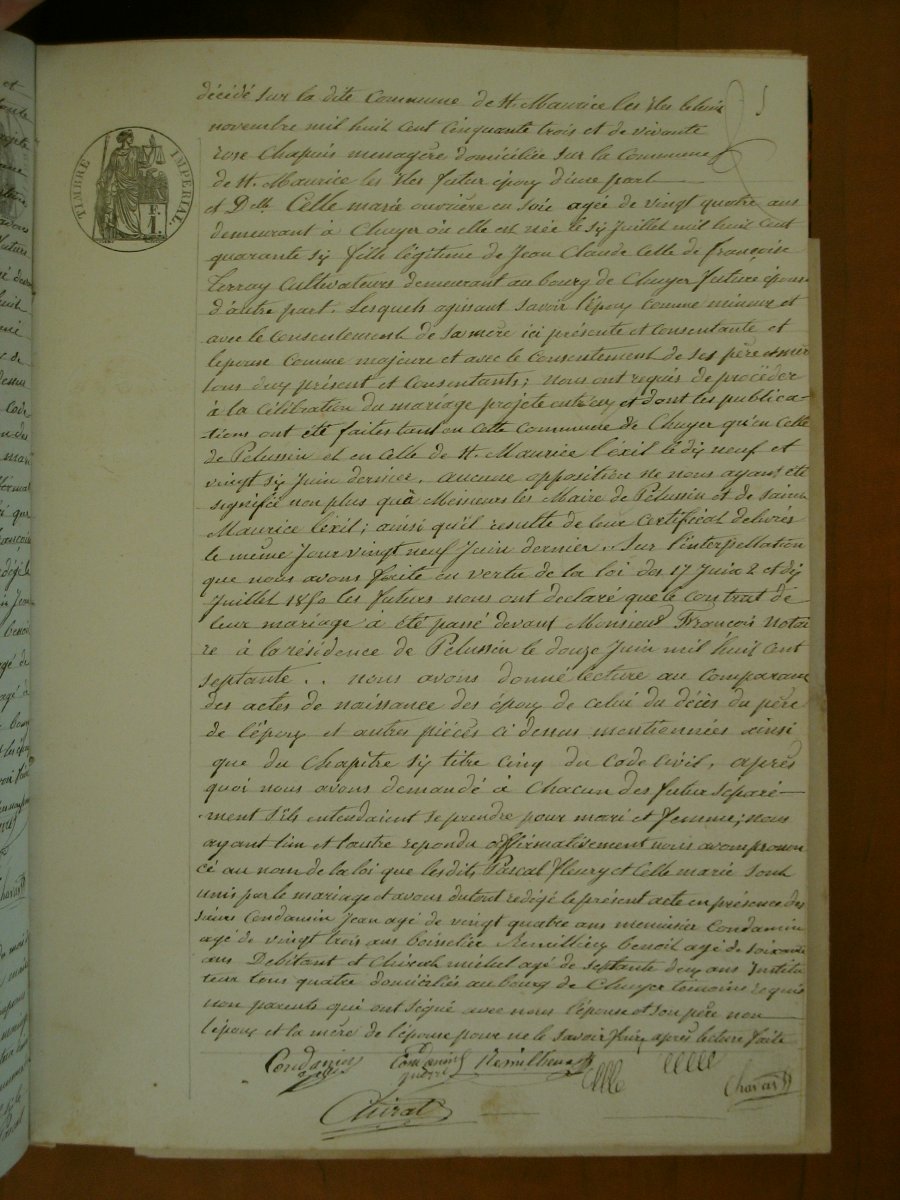 TIMBRE IMPERIAL
F.
1.
décédé sur la dite Commune de St. Maurice les Iles le
novembre mil huit cent cinquante trois et de vivante
rose Chapuis menagère domiciliée sur la Commune
de St. Maurice les Iles futur époux d'une part
et Delle Celle marie ouvrière en soie agé de vingt quatre ans
demeurant à Chuyer où elle est née le six Juillet mil huit cent
quarante six fille légitime de Jean Claude Celle de françoise
Terray Cultivateurs demeurant au bourg de Chuyer future épouse
d'autre part. Lesquels agissant savoir l'époux comme mineur et
avec le Consentement de sa mère ici présente et consentante et
l'epouse Comme majeure et avec le Consentement de ses père et mère
tous deux présent et Consentants; nous ont requis de procéder
à la célébration du mariage projeté entr'eux et dont les publica-
tions ont été faites tant en cette Commune de Chuyer qu'en celle
de Pelussin et en celle de St. Maurice l'éxil le dix neuf et
vingt six Juin dernier. aucune opposition ne nous ayant été
signifiée non plus qu'à Messieurs les Maire de Pelussin et de Saint
Maurice l'éxil; ainsi qu'il résulte de leur Certificat delivrés
le même Jour vingt neuf Juin dernier.. Sur l'interpellation
que nous avons faite en vertu de la loi des 17 Juin 2 et dix
Juillet 1850 les futurs nous ont declaré que le Contrat de
leur mariage à été passé devant Monsieur François Notai
re à la résidence de Pelussin le douze Juin mil huit cent
septante .. nous avons donné lecture au Comparant
des actes de naissance des époux de celui du décès du père
de l'époux et autres pièces ci dessus mentionnées ainsi
que du Chapitre six titre Cinq du Code Civil. après
quoi nous avons demandé à chacun des futur séparé-
ment s'ils entendaient se prendre pour mari et femme; nous
ayant l'un et l'autre repondu affirmativement nous avons pronon
cé au nom de la loi que les dits Pascal fleury et Celle marie sont
unis par le mariage et avons du tout redigé le présent acte en présence des
sieurs Condamin Jean agé de vingt quatre ans menuisier Condamin
agé de vingt trois ans boisselier Remillieux benoit agé de soixante
ans Debitant et Chirat michel agé de septante deux ans Institu
teur tous quatre domiciliés au bourg de Chuyer temoins requis
non parents qui ont signé avec nous l'épouse et son père non
l'époux et la mère de l'épouse pour ne le savoir faire après lecture faite
Condamin
Condamin
Remillieux
Celle
Celle
Chirat